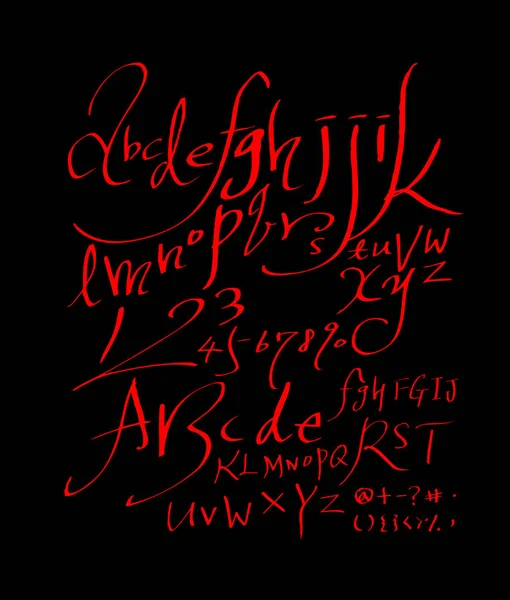 abcdefghijjk
lmnopqrstuvw
xyz
123
4567890
ABcde fghFGIJ
KLMNOPQRST
UVWXYZ @+-?#.
(){}<>٪.,